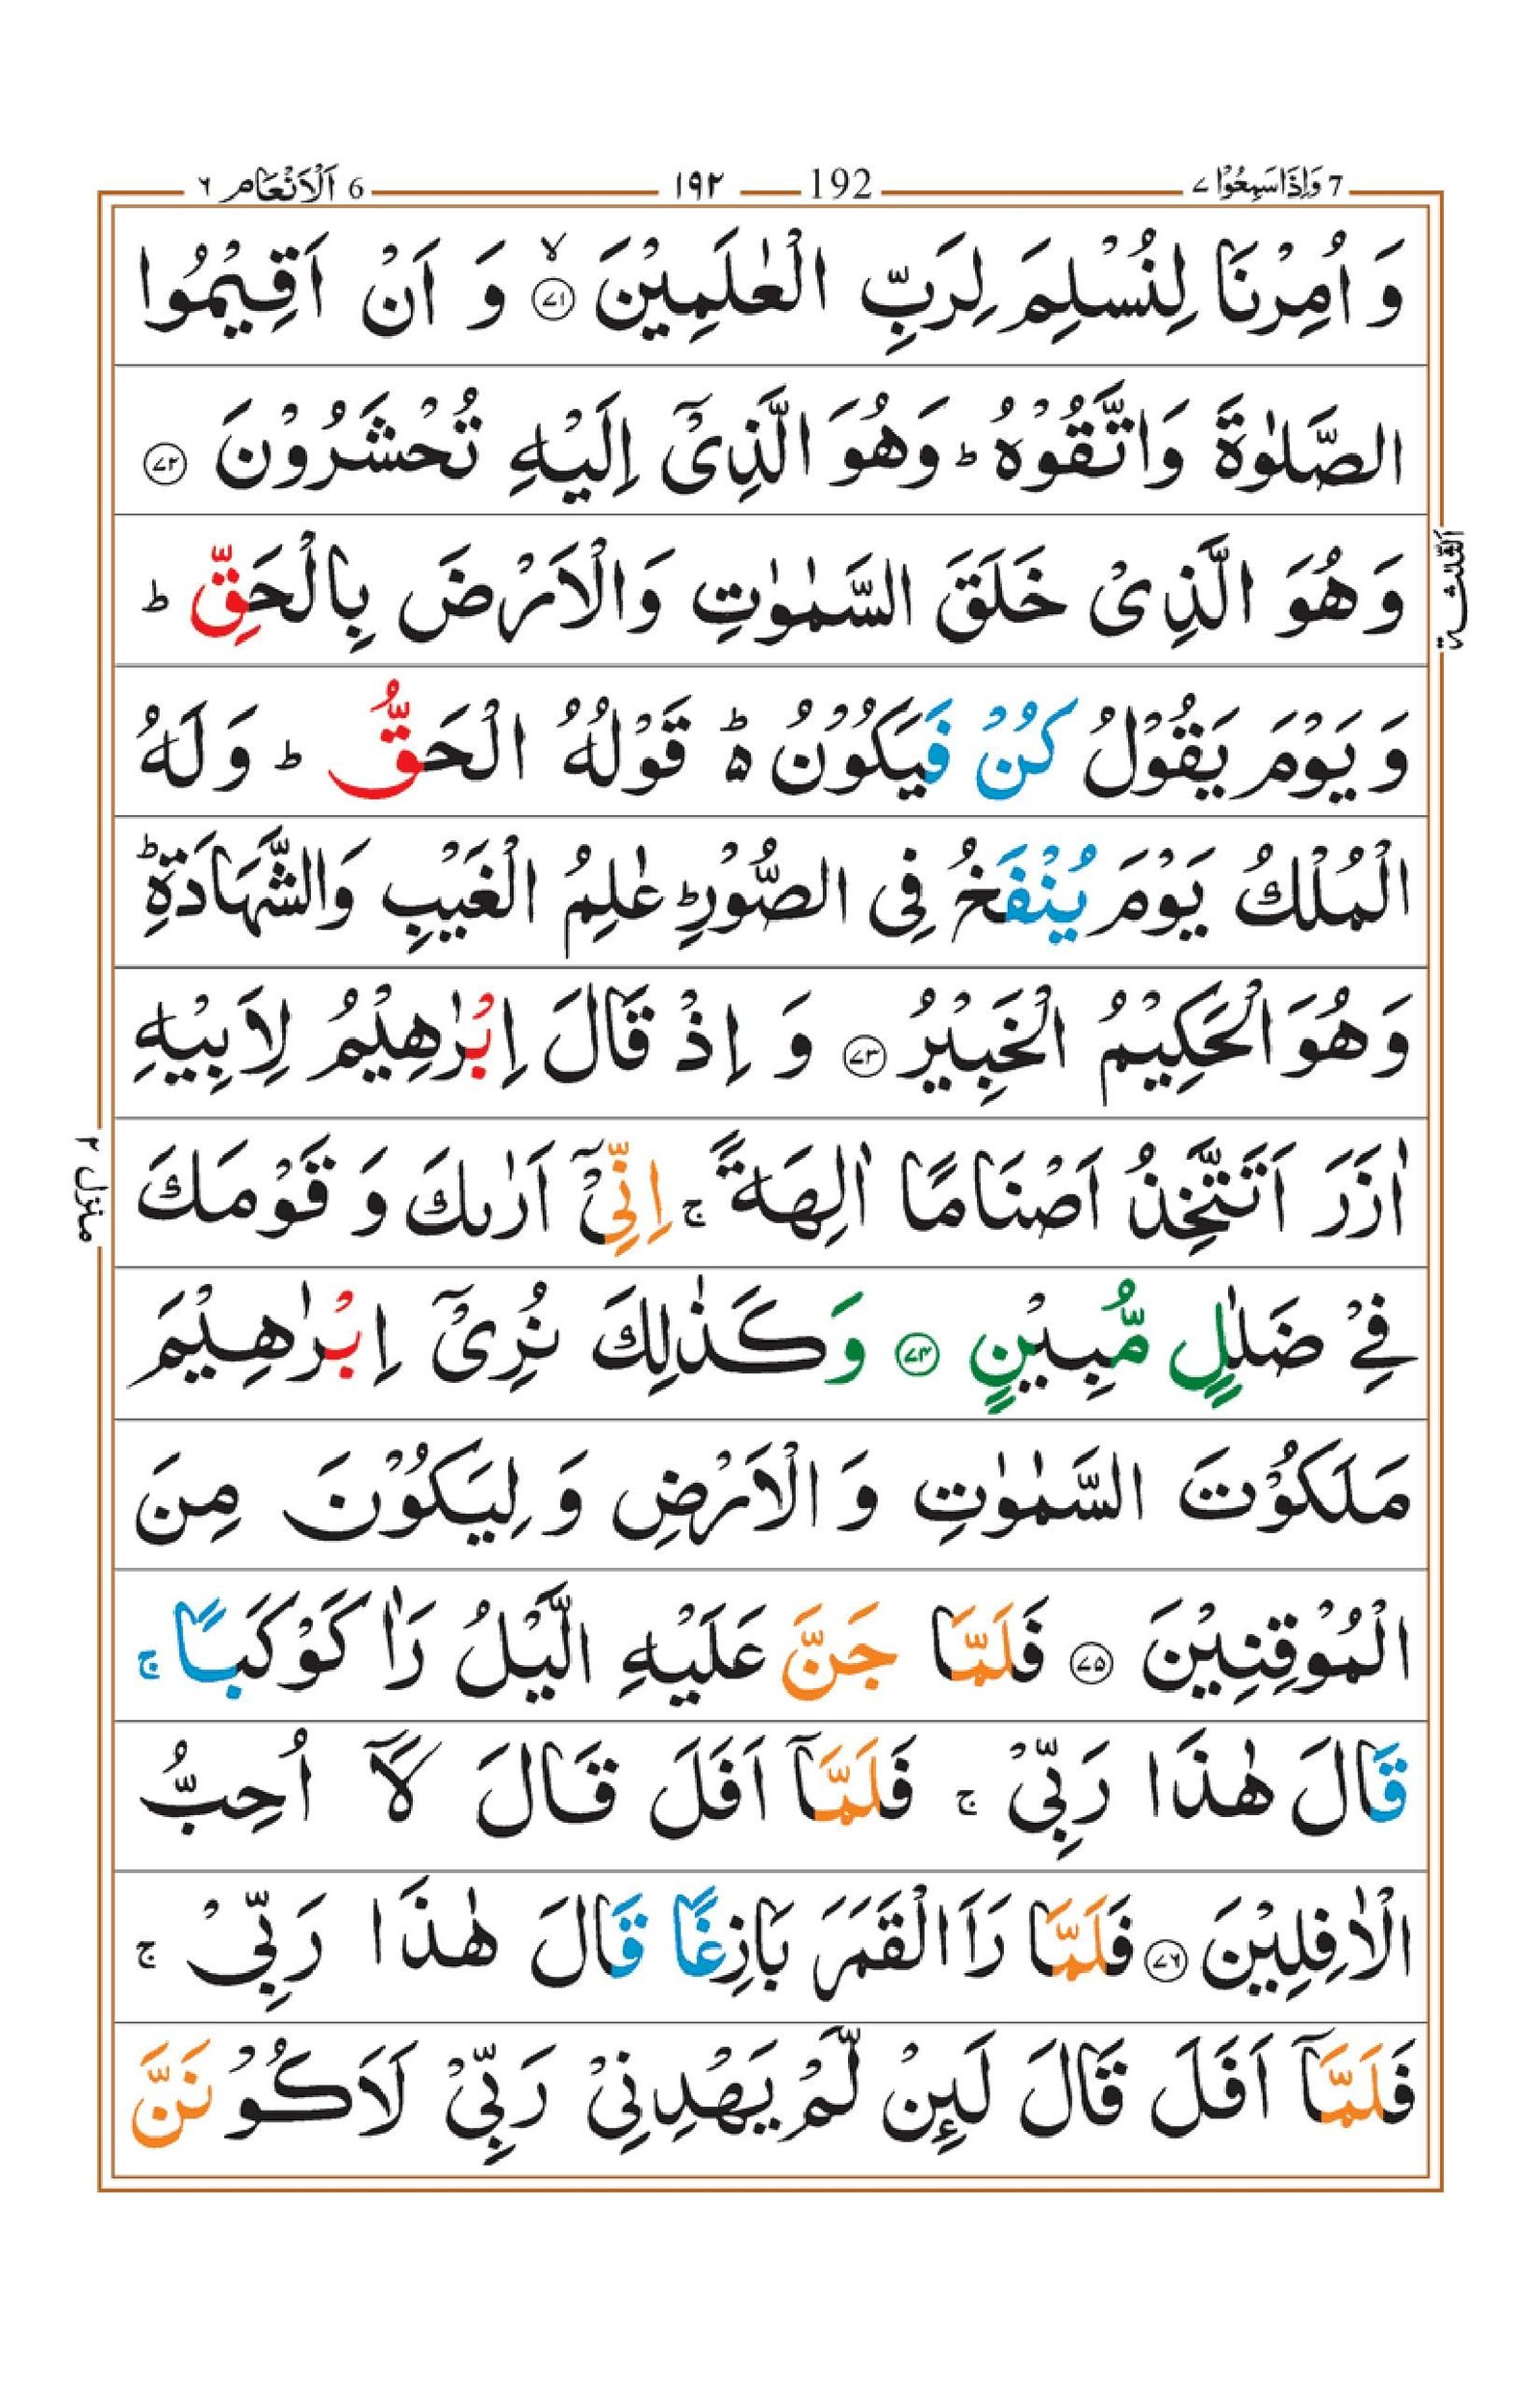 7 وَاِذَاسَمِعُوْا ٧ 192 ١٩٢ 6 اَلْاَنْعَام ٦
وَ اُمِرْنَا لِنُسْلِمَ لِرَبِّ الْعٰلَمِيْنَ ۙ﴿٧١﴾ وَ اَنْ اَقِيْمُوا
الصَّلٰوةَ وَاتَّقُوْهُ ؕ وَهُوَ الَّذِىْۤ اِلَيْهِ تُحْشَرُوْنَ ﴿٧٢﴾
وَ هُوَ الَّذِىْ خَلَقَ السَّمٰوٰتِ وَالْاَرْضَ بِالْحَقِّ ؕ
وَ يَوْمَ يَقُوْلُ كُنْ فَيَكُوْنُ ۬ؕ قَوْلُهُ الْحَقُّ ؕ وَ لَهُ
الْمُلْكُ يَوْمَ يُنْفَخُ فِى الصُّوْرِ ؕ عٰلِمُ الْغَيْبِ وَالشَّهَادَةِ ؕ
وَ هُوَ الْحَكِيْمُ الْخَبِيْرُ ﴿٧٣﴾ وَ اِذْ قَالَ اِبْرٰهِيْمُ لِاَبِيْهِ
اٰزَرَ اَتَتَّخِذُ اَصْنَامًا اٰلِهَةً ۚ اِنِّىْۤ اَرٰىكَ وَ قَوْمَكَ
فِىْ ضَلٰلٍ مُّبِيْنٍ ﴿٧٤﴾ وَ كَذٰلِكَ نُرِىْۤ اِبْرٰهِيْمَ
مَلَكُوْتَ السَّمٰوٰتِ وَ الْاَرْضِ وَ لِيَكُوْنَ مِنَ
الْمُوْقِنِيْنَ ﴿٧٥﴾ فَلَمَّا جَنَّ عَلَيْهِ الَّيْلُ رَاٰ كَوْكَبًا ۚ
قَالَ هٰذَا رَبِّىْ ۚ فَلَمَّاۤ اَفَلَ قَالَ لَاۤ اُحِبُّ
الْاٰفِلِيْنَ ﴿٧٦﴾ فَلَمَّا رَاَ الْقَمَرَ بَازِغًا قَالَ هٰذَا رَبِّىْ ۚ
فَلَمَّاۤ اَفَلَ قَالَ لَئِنْ لَّمْ يَهْدِنِىْ رَبِّىْ لَاَكُوْنَنَّ
الثلثة
منزل ٢